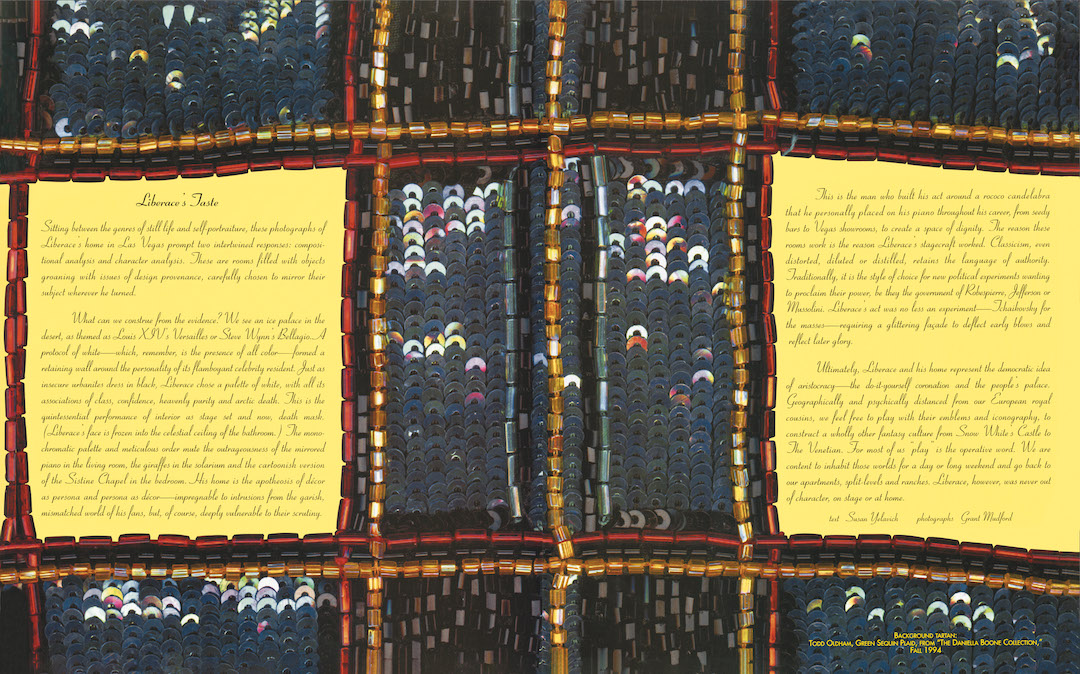 Liberace's Taste
Sitting between the genres of still life and self-portraiture, these photographs of
Liberace's home in Las Vegas prompt two intertwined responses: composi-
tional analysis and character analysis. These are rooms filled with objects
groaning with issues of design provenance, carefully chosen to mirror their
subject wherever he turned.
What can we construe from the evidence? We see an ice palace in the
desert, as themed as Louis XIV's Versailles or Steve Wynn's Bellagio. A
protocol of white—which, remember, is the presence of all color—formed a
retaining wall around the personality of its flamboyant celebrity resident. Just as
insecure urbanites dress in black, Liberace chose a palette of white, with all its
associations of class, confidence, heavenly purity and arctic death. This is the
quintessential performance of interior as stage set and now, death mask.
(Liberace's face is frozen into the celestial ceiling of the bathroom.) The mono-
chromatic palette and meticulous order mute the outrageousness of the mirrored
piano in the living room, the giraffes in the solarium and the cartoonish version
of the Sistine Chapel in the bedroom. His home is the apotheosis of décor
as persona and persona as décor—impregnable to intrusions from the garish,
mismatched world of his fans, but, of course, deeply vulnerable to their scrutiny.
This is the man who built his act around a rococo candelabra
that he personally placed on his piano throughout his career, from seedy
bars to Vegas showrooms, to create a space of dignity. The reason these
rooms work is the reason Liberace's stagecraft worked. Classicism, even
distorted, diluted or distilled, retains the language of authority.
Traditionally, it is the style of choice for new political experiments wanting
to proclaim their power, be they the government of Robespierre, Jefferson or
Mussolini. Liberace's act was no less an experiment—Tchaikovsky for
the masses—requiring a glittering façade to deflect early blows and
reflect later glory.
Ultimately, Liberace and his home represent the democratic idea
of aristocracy—the do-it-yourself coronation and the people's palace.
Geographically and psychically distanced from our European royal
cousins, we feel free to play with their emblems and iconography, to
construct a wholly other fantasy culture from Snow White's Castle to
The Venetian. For most of us "play" is the operative word. We are
content to inhabit those worlds for a day or long weekend and go back to
our apartments, split-levels and ranches. Liberace, however, was never out
of character, on stage or at home.
text Susan Yelavich photographs Grant Mudford
Background tartan:
Todd Oldham, Green Sequin Plaid, from "The Daniella Boone Collection,"
Fall 1994